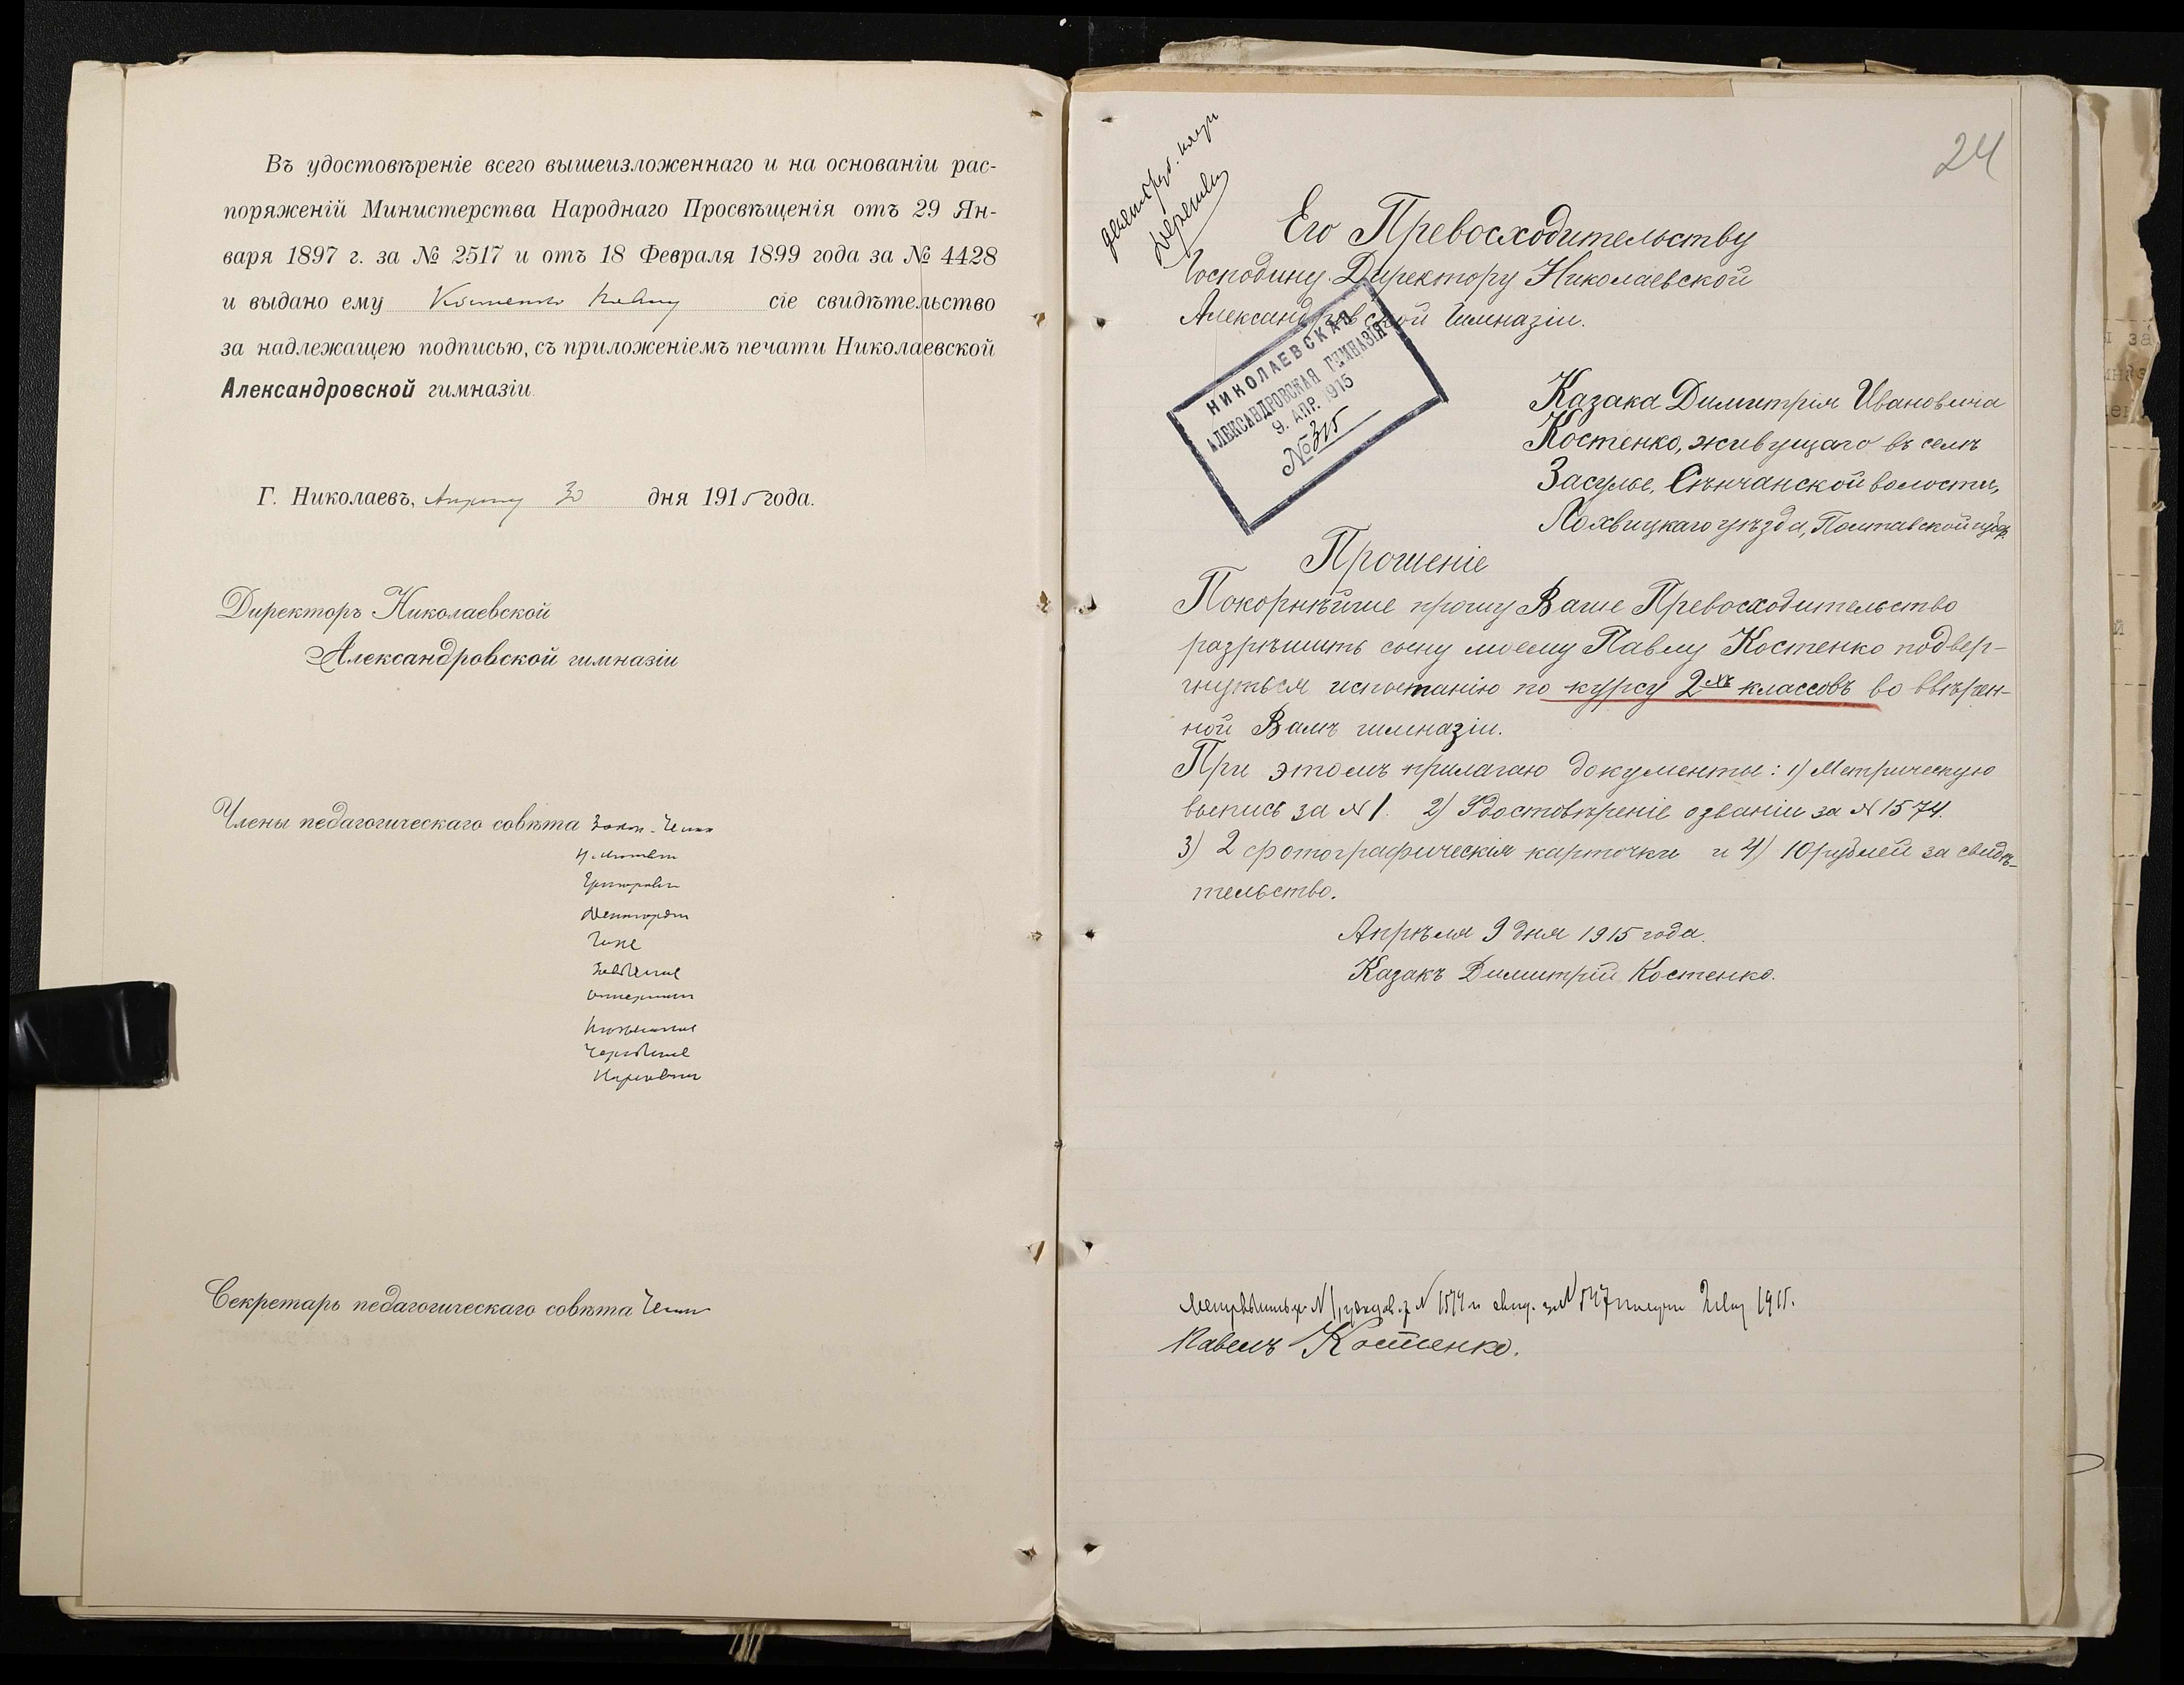 Въ удостовѣреніе всего вышеизложеннаго и на основаніи рас-
поряженій Министерства Народнаго Просвѣщенія отъ 29 Ян-
варя 1897 г. за № 2517 и отъ 18 Февраля 1899 года за № 4428
и выдано ему Костенко Павлу сіе свидѣтельство
за надлежащею подписью, съ приложеніемъ печати Николаевской
Александровской гимназіи.
Г. Николаевъ, Апрѣля 30 дня 1915 года.
Директоръ Николаевской
Александровской гимназіи
Члены педагогическаго совѣта
Секретарь педагогическаго совѣта
24
Его Превосходительству
Господину Директору Николаевской
Александровской Гимназіи.
НИКОЛАЕВСКАЯ
АЛЕКСАНДРОВСКАЯ ГИМНАЗІЯ
9. АПР. 1915
№ 315
Казака Димитрія Ивановича
Костенко, живущаго въ селѣ
Засулье, Сѣнчанской волости,
Лохвицкаго уѣзда, Полтавской губ.
Прошеніе
Покорнѣйше прошу Ваше Превосходительство
разрѣшить сыну моему Павлу Костенко подвер-
гнуться испытанію по курсу 2хъ классовъ во ввѣрен-
ной Вамъ гимназіи.
При этомъ прилагаю документы: 1) Метрическую
выпись за № 1. 2) Удостовѣреніе о званіи за № 1574.
3) 2 фотографическія карточки и 4) 10 рублей за свидѣ-
тельство.
Апрѣля 9 дня 1915 года.
Казакъ Димитрій Костенко.
№ 1, № 1574 и свид. за № 547 1915.
Павелъ Костенко.